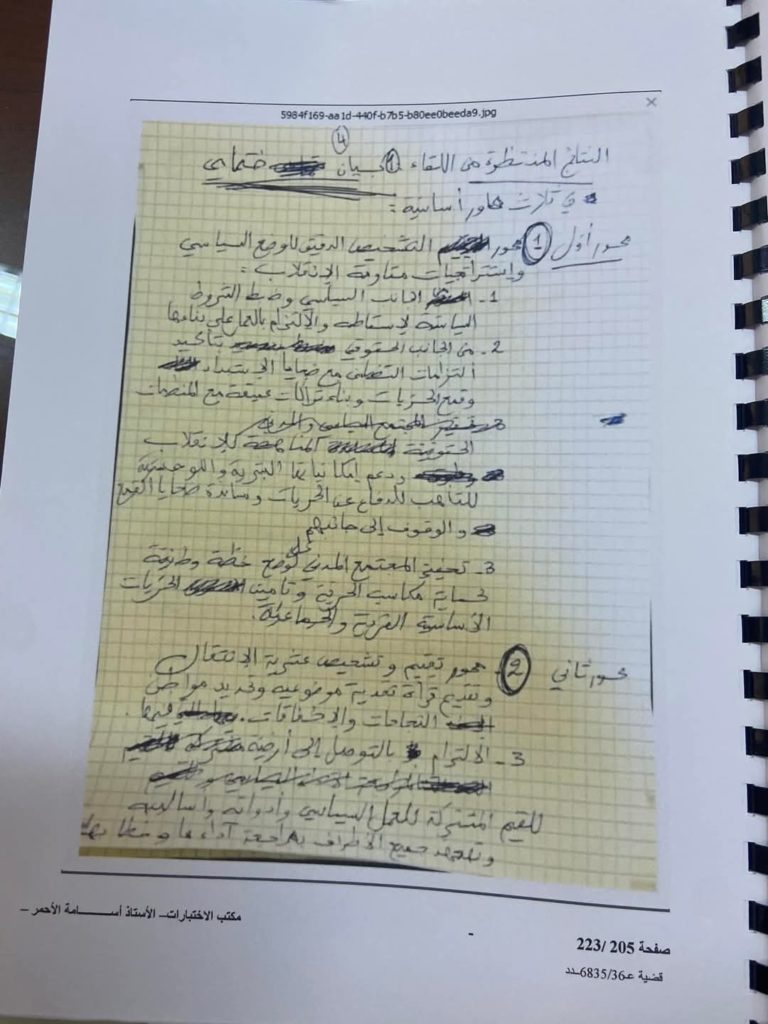 5984f169-aa1d-440f-b7b5-b80ee0beeda9.jpg
4
النتائج المنتظرة من اللقاء ① بيان ختامي
في ثلاث محاور أساسية :
محور أول ① محور التشخيص الدقيق للوضع السياسي
واستراتيجيات مقاومة الإنقلاب :
1 - الجانب السياسي وضبط الشروط
السياسية لإسقاطه والالتزام بالعمل على بنائها
2 - من الجانب الحقوقي تأكيد
التزامات التضامن مع ضحايا الاستبداد
وقمع الحريات وبناء شراكات عميقة مع المنظمات
الحقوقية المناهضة للإنقلاب
ودعم إمكانياتها البشرية واللوجستية
للتأهب للدفاع عن الحريات ومساندة ضحايا القمع
والوقوف إلى جانبهم
3 - تحفيز المجتمع المدني على وضع خطة وطنية
لحماية مكاسب الحرية وتأمين الحريات
الأساسية الفردية والجماعية.
محور ثاني ② محور تقييم وتشخيص عشرية الانتقال
وتقديم قراءة نقدية موضوعية وتحديد مواطن
النجاحات والإخفاقات فيها.
3 - الالتزام بالتوصل إلى أرضية مشتركة
للقيم المشتركة للعمل السياسي وأدواته وأساليبه
وتعهد جميع الأطراف بمراجعة أداءها وخطابها
مكتب الاختبارات– الأستاذ أسـامة الأحمر –
صفحة 205 /223
قضية عـ6835/36ـدد